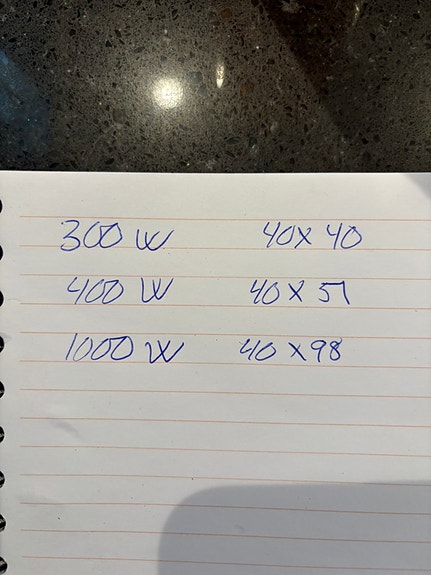 300 W 40X 40
400 W 40 X 51
1000 W 40 X 98